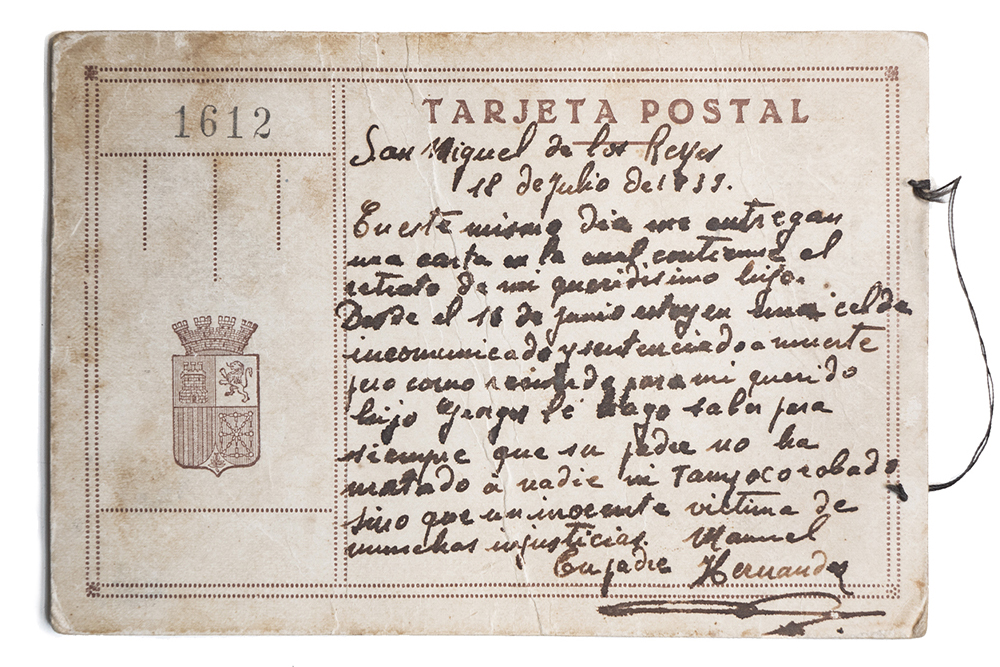 1612
TARJETA POSTAL
San Miguel de los Reyes
18 de Julio de 1939.
En este mismo dia me entregan
una carta en la cual contiene el
retrato de mi queridisimo hijo.
Desde el 16 de junio estoy en una celda
incomunicado y sentenciado a muerte
pero como recuerdo para mi querido
hijo le hago saber para
siempre que su padre no ha
matado a nadie ni Tampoco robado
sino que un inocente victima de
munchas injusticias. Manuel
Tu padre Hernandez